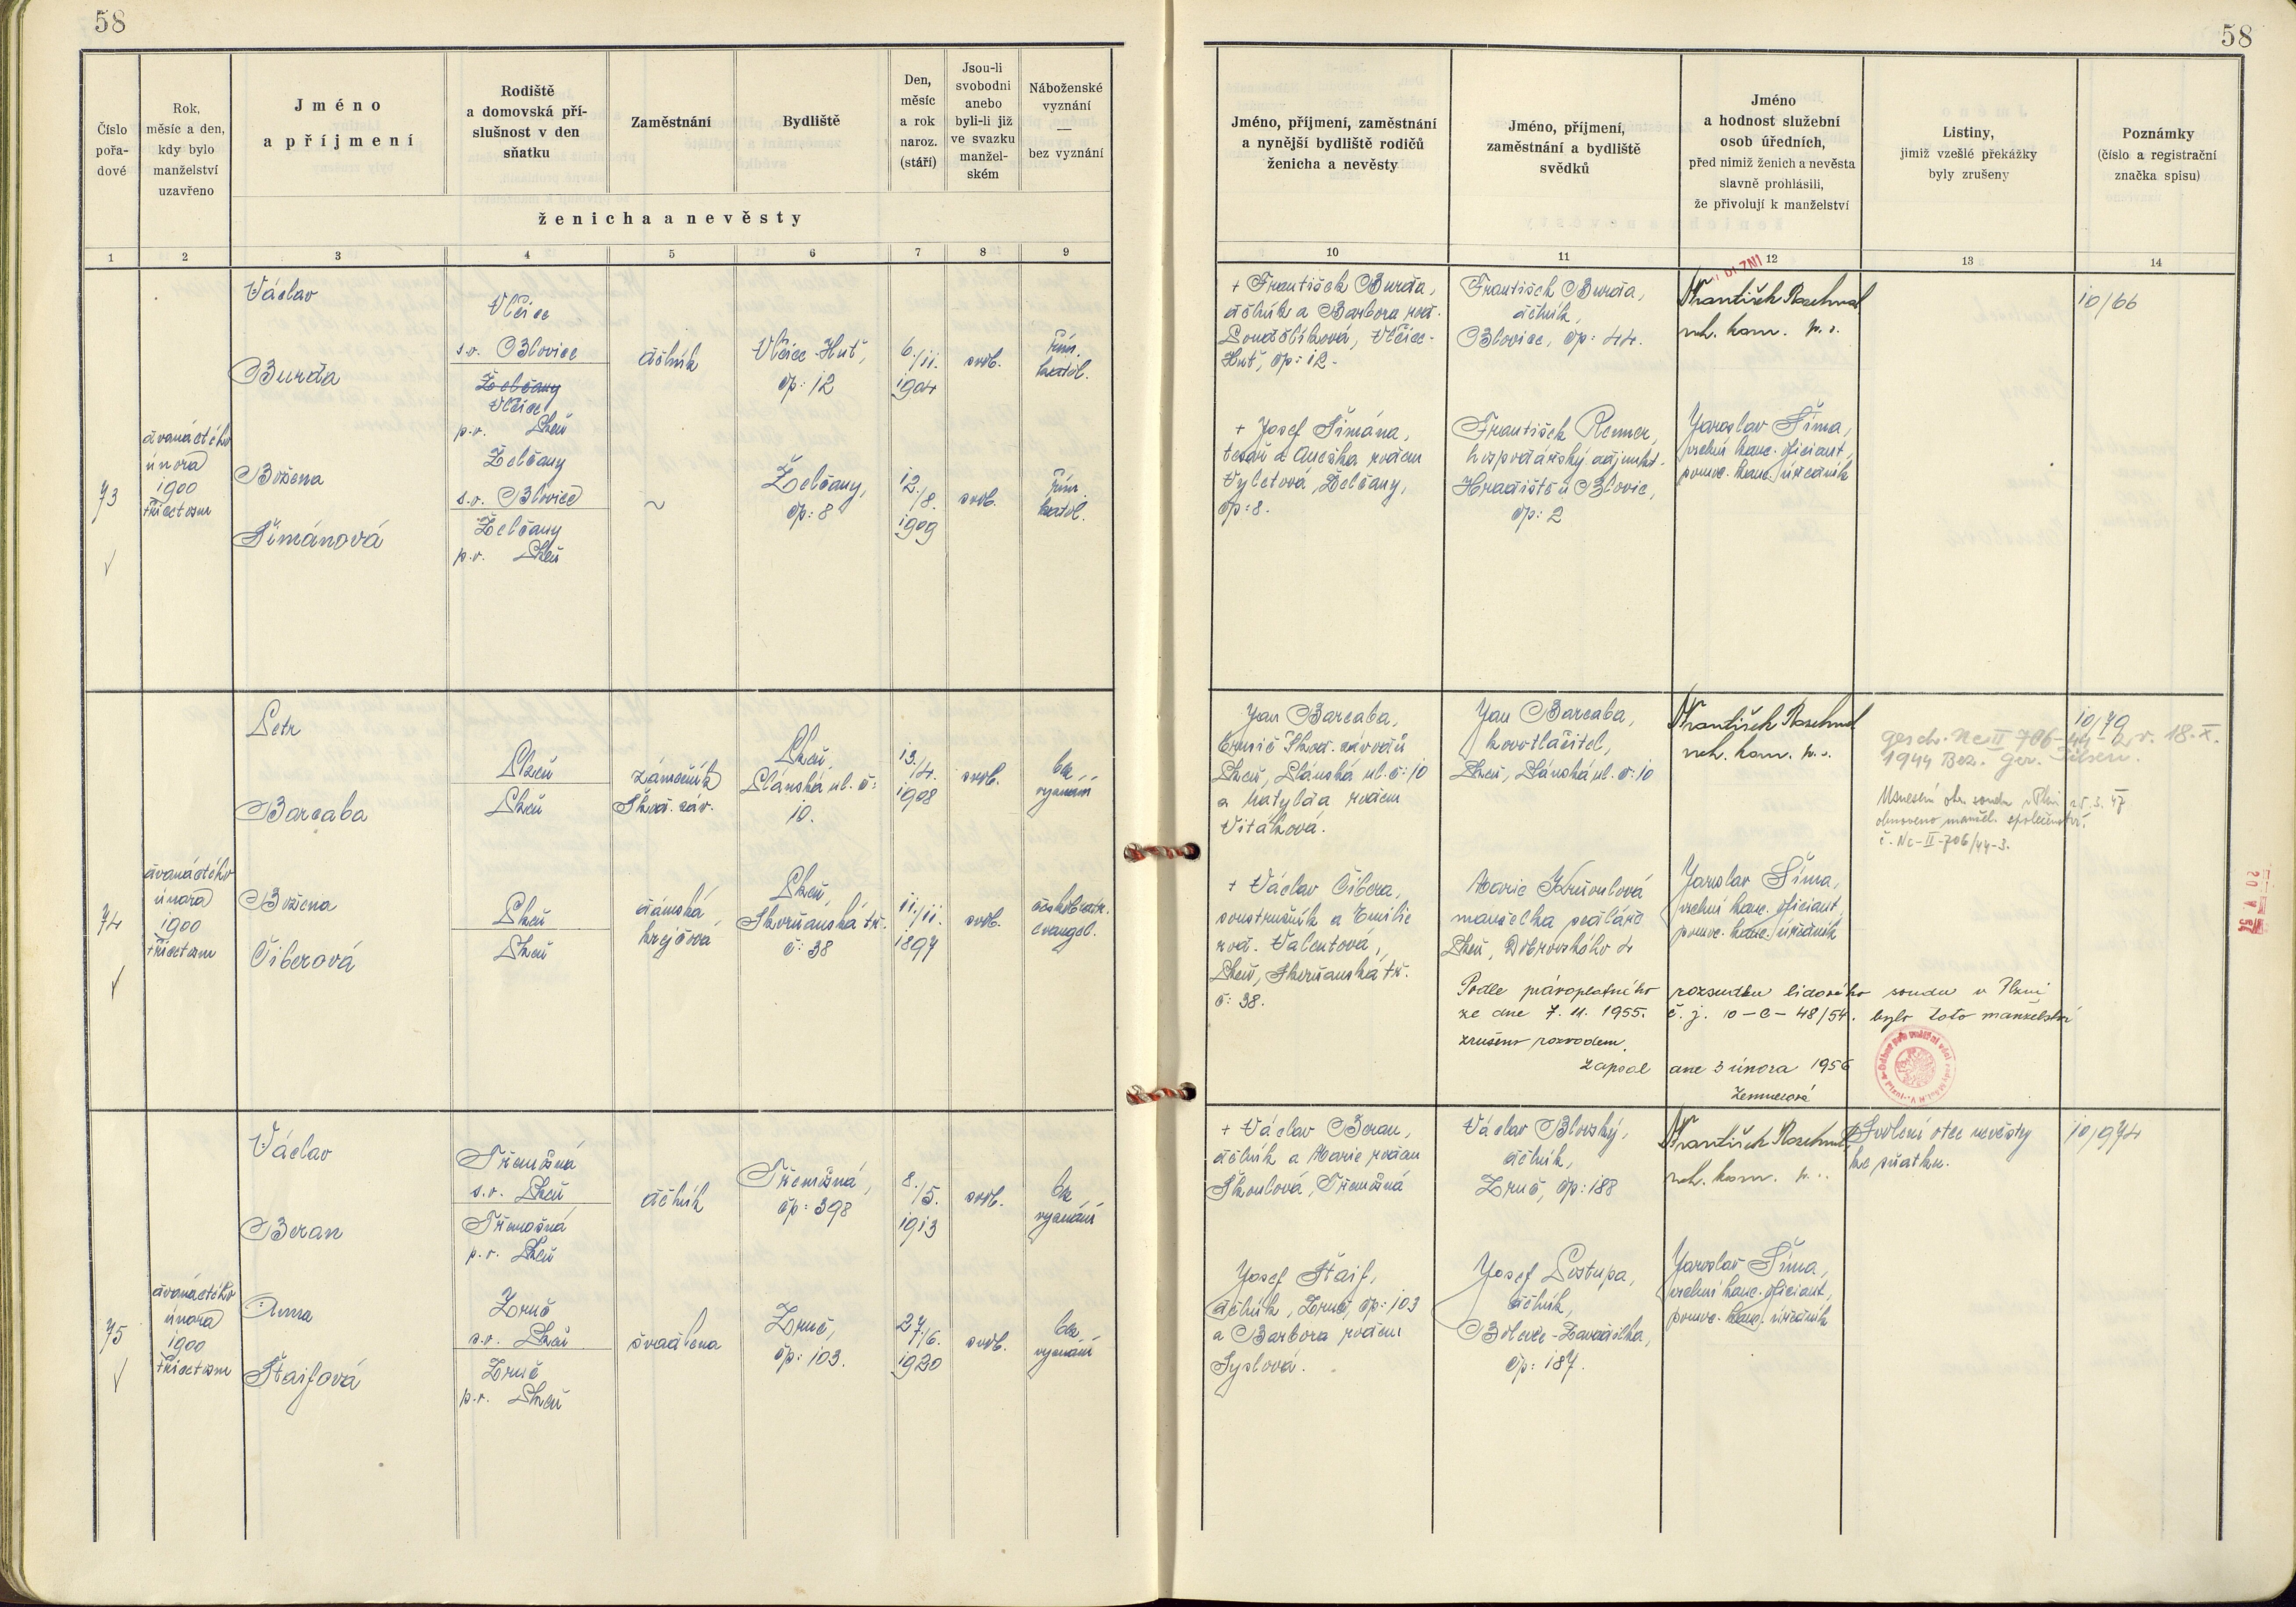 58
58
Číslo
pořa-
dové
Rok,
měsíc a den,
kdy bylo
manželství
uzavřeno
Jméno
a příjmení
Rodiště
a domovská pří-
slušnost v den
sňatku
Zaměstnání
Bydliště
Den,
měsíc
a rok
naroz.
(stáří)
Jsou-li
svobodni
anebo
byli-li již
ve svazku
manžel-
ském
Náboženské
vyznání
—
bez vyznání
ženicha a nevěsty
Jméno, příjmení, zaměstnání
a nynější bydliště rodičů
ženicha a nevěsty
Jméno, příjmení,
zaměstnání a bydliště
svědků
Jméno
a hodnost služební
osob úředních,
před nimiž ženich a nevěsta
slavně prohlásili,
že přivolují k manželství
Listiny,
jimiž vzešlé překážky
byly zrušeny
Poznámky
(číslo a registrační
značka spisu)
1 2 3 4 5 6 7 8 9
10 11 12 13 14
73
dvanáctého
února
1900
třicetosm
Václav
Burda
Vlčice
s.o. Blovice
Želčany
Vlčice
p.o. Plzeň
dělník
Vlčice-Huť,
čp: 12
6./11.
1904
svob.
řím.
katol.
Božena
Šimánová
Želčany
s.o. Blovice
Želčany
p.o. Plzeň
~
Želčany,
čp: 8
12./8.
1909
svob.
řím.
katol.
+ František Burda,
dělník a Barbora roz.
Vlčice-
Huť, čp: 12.
František Burda,
dělník,
Blovice, čp: 44.
František
rada
10/66
+ Josef Šimána,
tesař a Anežka rodem
Vyletová, Želčany,
čp: 8.
František Renner,
hospodářský adjunkt.
Hradiště u Blovic,
čp: 2
Jaroslav Šíma,
vrchní kanc. oficiant,
pomoc. kanc. úředník
74
dvanáctého
února
1900
třicetosm
Petr
Barcaba
Plzeň
Plzeň
zámečník
Škod. záv.
Plzeň,
Plánská ul. č:
10.
13./4.
1908
svob.
bez
vyznání
Božena
Čiberová
Plzeň
Plzeň
dámská
krejčová
Plzeň,
Skvrňanská tř.
č: 38
11./11.
1897
svob.
českobratr.
evangel.
Jan Barcaba,
brusič Škod. závodů
Plzeň, Plánská ul. č: 10
a Matylda rodem
Vitáková.
Jan Barcaba,
kovotlačitel,
Plzeň, Plánská ul. č: 10
František
10/79
gesch. Nc II 706-44-2 v. 18. X.
1944 Bez. Ger. Pilsen.
Usnesení okr. soudu v Plzni 25. 3. 47
obnoveno manžel. společenství.
č. Nc-II-706/44-3.
+ Václav Čibera,
soustružník a Emilie
roz. Valentová,
Plzeň, Skvrňanská tř.
č: 38.
Marie Křivoulová
manželka pedláře
Plzeň, Dobrovského 4
Jaroslav Šíma,
vrchní kanc. oficiant,
pomoc. kanc. úředník
Podle právoplatného rozsudku lidového soudu v Plzni
ze dne 7. 11. 1955. č. j. 10-C-48/54. bylo toto manželství
zrušeno rozvodem.
Zapsal dne 3 února 1956
75
dvanáctého
února
1900
třicetosm
Václav
Beran
Třemošná
s.o. Plzeň
Třemošná
p.o. Plzeň
dělník
Třemošná,
čp: 398
8./5.
1913
svob.
bez
vyznání
Anna
Štaifová
Zruč
s.o. Plzeň
Zruč
p.o. Plzeň
švadlena
Zruč,
čp: 103.
27/6.
1920
svob.
bez
vyznání
+ Václav Beran,
dělník a Marie rodem
Škoulová, Třemošná
Václav Blovský,
dělník,
Zruč, čp: 188
František
Svolení otce nevěsty
ke sňatku.
10/974
Josef Štaif,
dělník, Zruč, čp: 103
a Barbora rodem
Syslová.
Josef Postupa,
dělník,
Bolevec-Zavadilka,
čp: 187.
Jaroslav Šíma,
vrchní kanc. oficiant,
pomoc. kanc. úředník